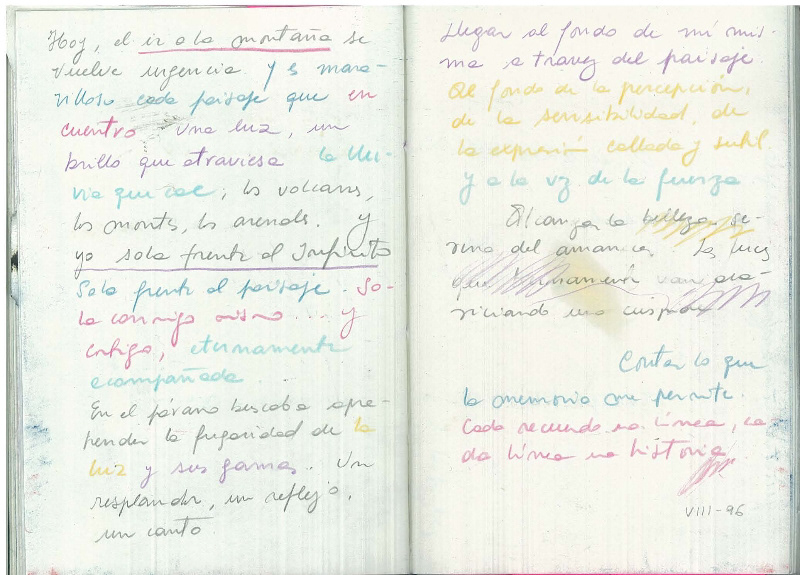 Hoy, el ir a la montaña se
vuelve urgencia. Y es mara-
villoso cada paisaje que en
cuentro. Una luz, un
brillo que atraviesa la llu-
via que cae; los volcanes,
los montes, los arenales. Y
yo sola frente al Infinito
Sola frente al paisaje. So-
la conmigo misma.... y
contigo, eternamente
acompañada.
En el páramo buscaba apre-
hender la fugacidad de la
luz y sus gamas. Un
resplandor, un reflejo,
un canto.
Llegar al fondo de mí mis-
ma a travez del paisaje.
Al fondo de la percepción,
de la sensibilidad, de
la expresión callada y sutil.
Y a la vez de la fuerza.
Alcanzar la belleza se-
rena del amanecer. Las luces
que van aca-
riciando una cúspide
Contar lo que
la memoria me permite.
Cada recuerdo una línea, ca
da línea una historia.
VIII-96